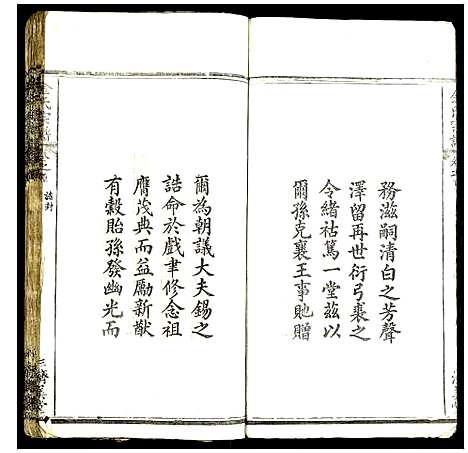 務滋嗣清白之芳聲
澤留再世衍弓裘之
令緒祜篤一堂兹以
爾孫克襄王事貤贈
爾為朝議大夫錫之
誥命於戲聿修念祖
膺茂典而益勵新猷
有穀貽孫發幽光而
誥封